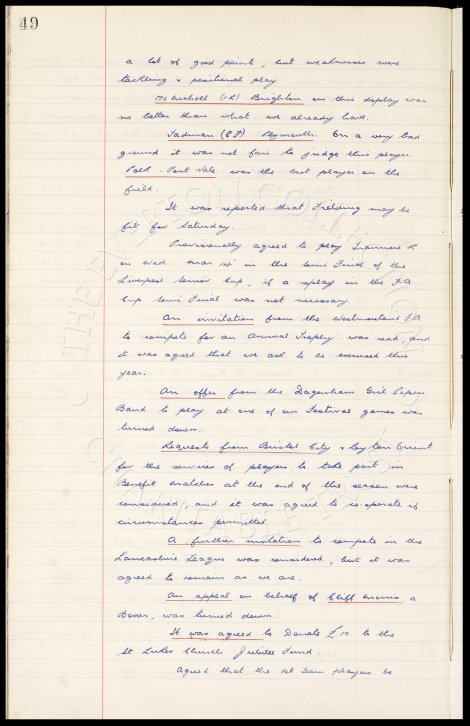 49
a lot of good points, but weaknesses were
tackling & positional play.
McNichol (IR) Brighton on this display was
no better than what we already have.
Tadman (CF) Plymouth. On a very bad
ground it was not fair to judge this player.
Polk - Port Vale was the best player on the
field.
It was reported that Fielding may be
fit for Saturday.
Provisionally agreed to play Tranmere R
on Wed in the Semi Final of the
Liverpool Senior Cup, if a replay in the F.A.
Cup Semi Final was not necessary.
An invitation from the Westmorland F.A
to compete for an Annual Trophy was read, and
it was agreed that we ask to be excused this
year.
An offer from the Dagenham Girl Pipers
Band to play at one of our Festival games was
turned down.
Requests from Bristol City & Leyton Orient
for the services of players to take part in
Benefit matches at the end of the season were
considered, and it was agreed to co-operate if
circumstances permitted
A further invitation to compete in the
Lancashire League was considered, but it was
agreed to remain as we are.
An appeal on behalf of Cliff a
Boxer, was turned down.
It was agreed to Donate £10 to the
St Lukes Church Jubilee Fund.
Agreed that the 1st Team players be
THE EVERTON COLLECTION
CHARITABLE TRUST